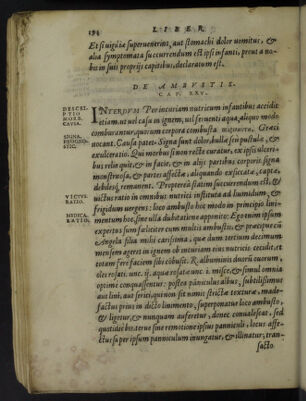 194 LIBER
Et si vigiliæ superuenerint, aut stomachi dolor vomitus, &
alia symptomata succurrendum est ipsi infanti, prout a no-
bis in suis proprijs capitibus, declaratum est.
DE AMBVSTIS.
CAP. XXV.
DESCRI-
PTIO
MORB.
CAVSA.
SIGNA.
PROGNO-
STIC.
VICTVS
RATIO.
MEDICA.
RATIO.
INTERDVM Per incuriam nutricum infantibus accidit
etiam ut vel casu in ignem, vel feruenti aqua, aliquo modo
comburantur, quorum corpora combusta Græci
vocant. Causa patet. Signa sunt dolor, bullæ seu pustulæ, &
exulceratio. Qui morbus si non recte curatur, in
bus relinquit, & in facie, & in alijs partibus corporis, signa
monstruosa, & partes affectæ, aliquando exsiccatæ, captæ,
debilesq; remanent. Propterea statim succurrendum est, &
victus ratio in omnibus nutrici instituta ad humidum, &
frigidum uergens: loco ambusto hoc modo in principio lini-
mentum hoc, sine ulla dubitatione apponito; Ego enim ipsum
expertus sum fœliciter cum multis ambustis, & præcipue cum
Angela filia mihi carissima, quæ dum tertium decimum
mensem ageret in ignem ob incuriam eius nutricis cecidit, et
totam fere faciem sibi cobusit. R. albuminis duorū ouorum,
olei rosati, unc. ij. aquæ rosatæ unc. i. misce, & simul omnia
optime conquassentur: postea panniculus albus, subtilissimus
aut lini, aut serici, qui non sit nimis stricta texturæ, made-
factus prius in dicto linimento, superponatur loco ambusto,
& ligetur, & nunquam auferatur, donec consolescat, sed
quotidie bis terue sine remotione ipsius panniculi, locus affe-
ctus super ipsum panniculum inungatur, & illinatur; tran-
sacto